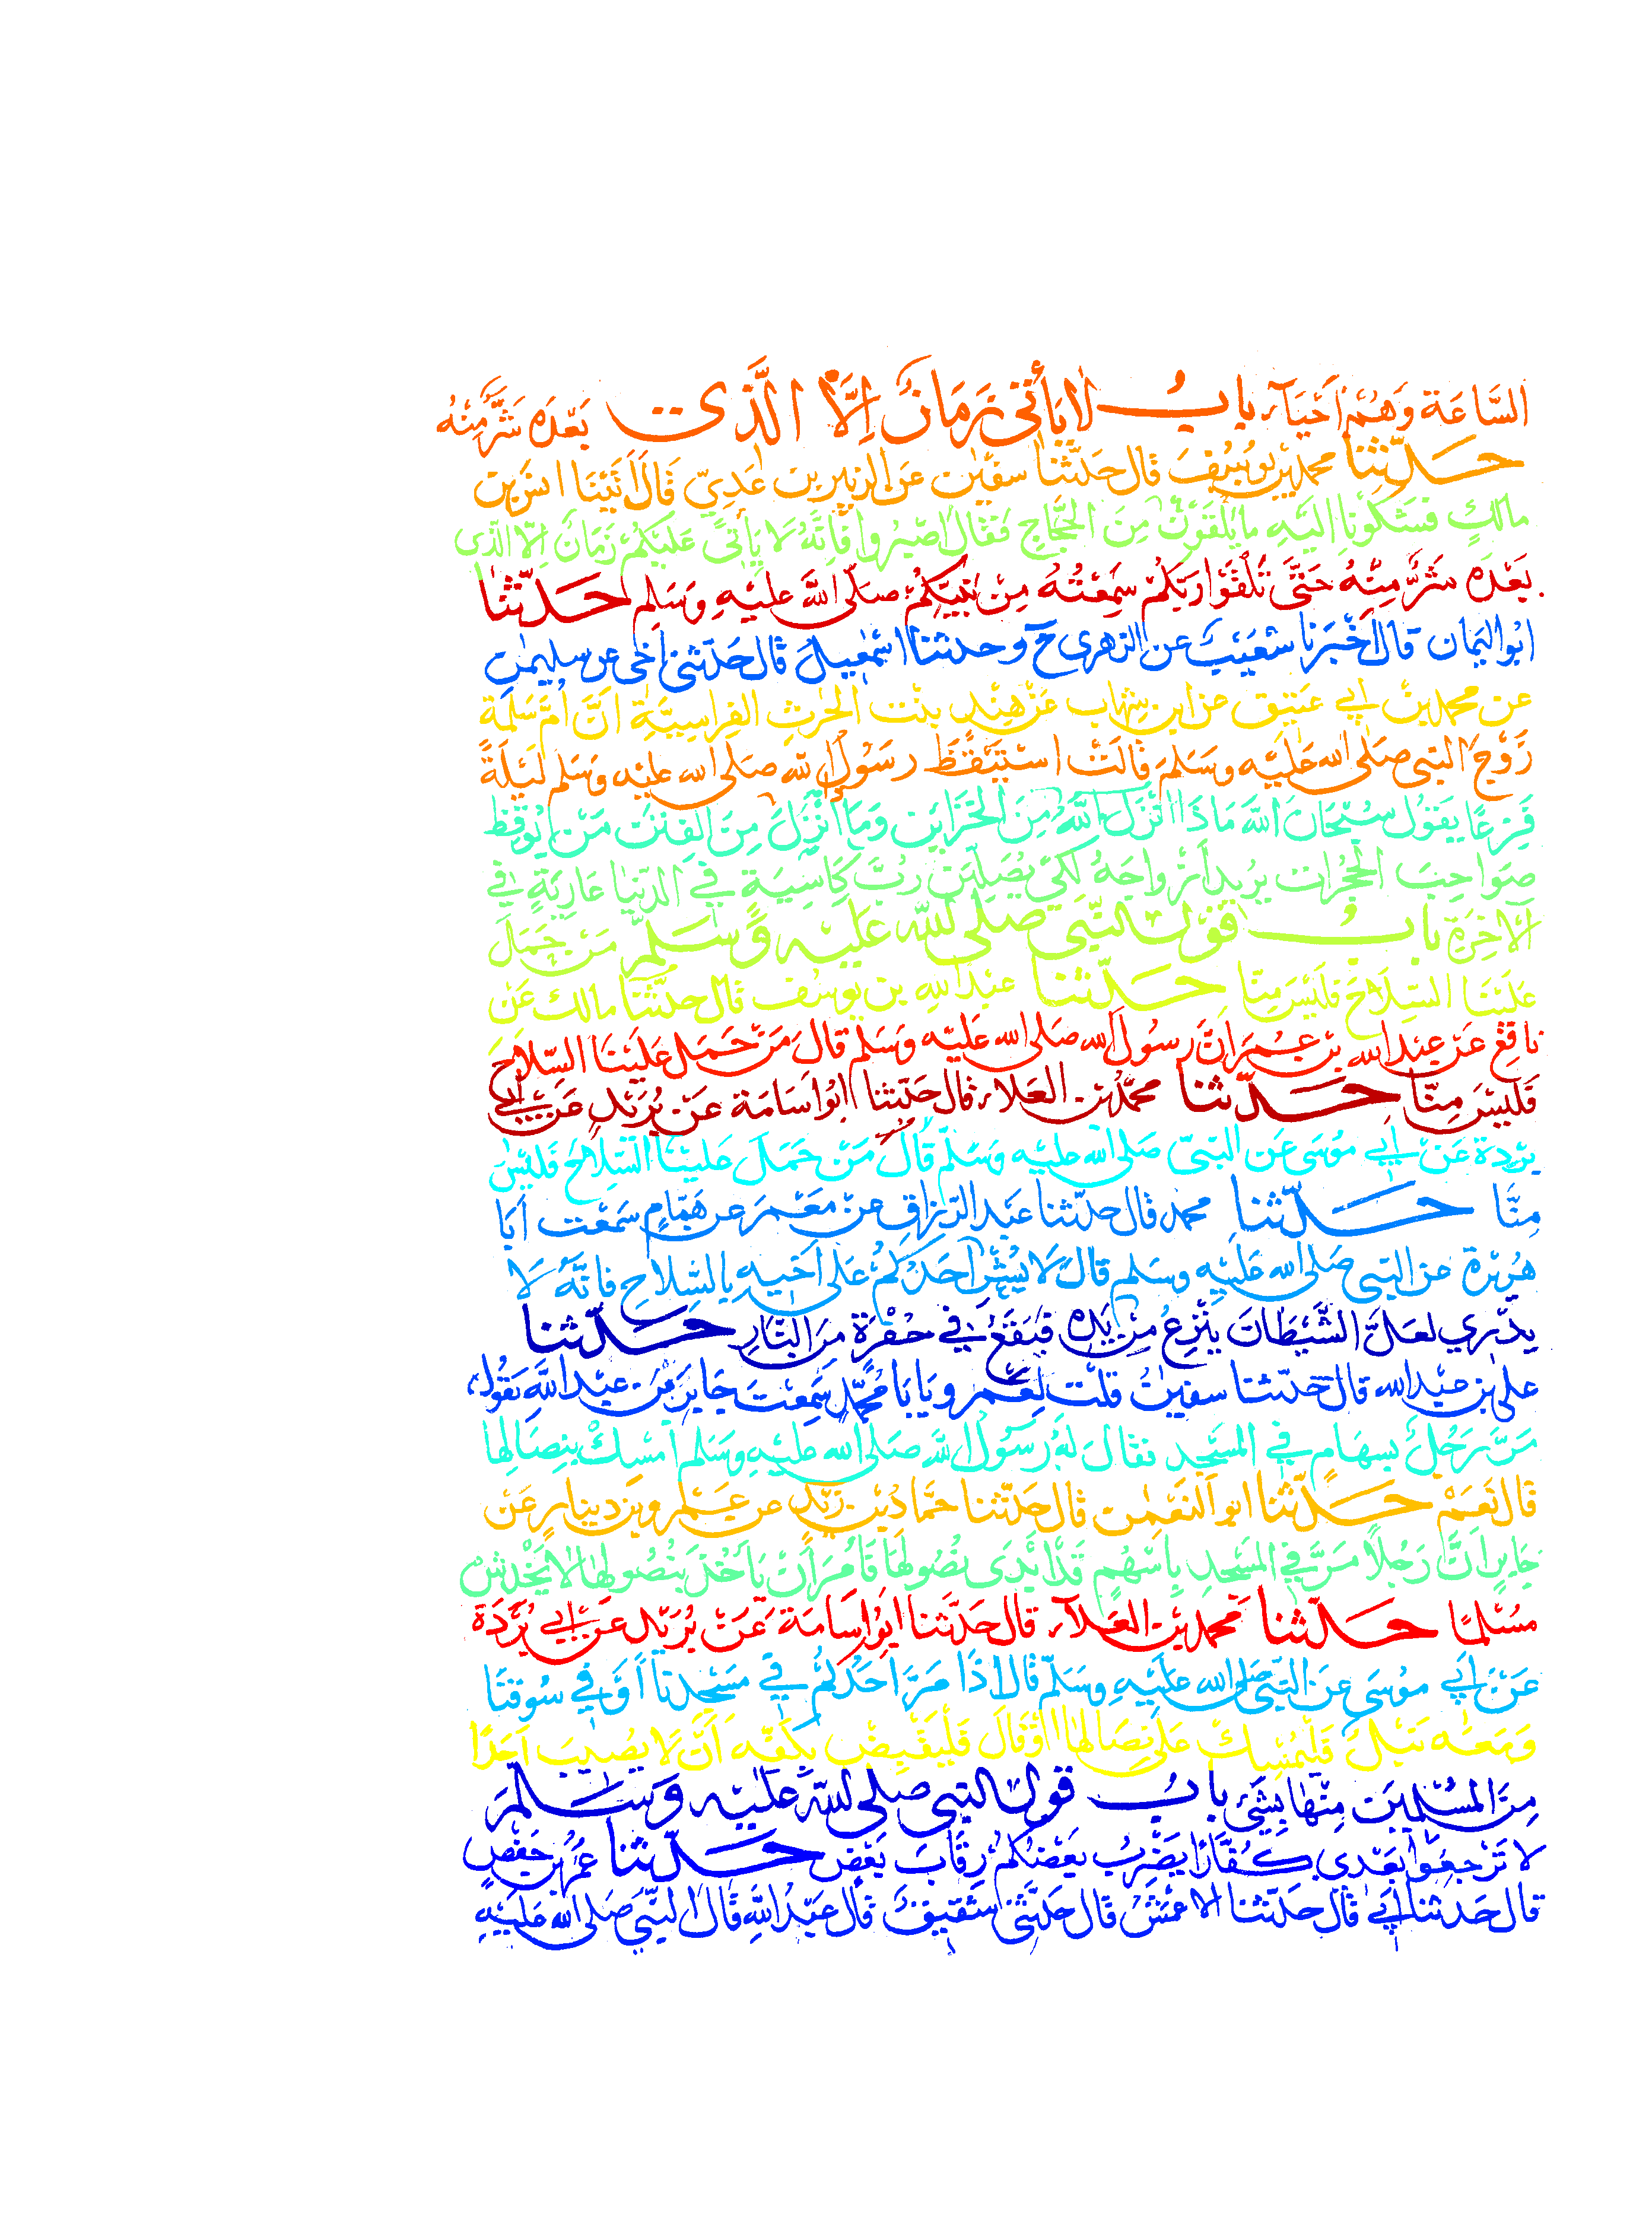 السَّاعَة وَهُمْ اَحْيَآء باب لا يَأتى زَمَانٌ اِلَّا الَّذى بَعْدَه شَرٌّ مِنْهُ
حَدّثنا محمد بن يوسُفَ قال حَدّثنا سفيٰن عَن الزبير بن عَدِيّ قَالَ اَتَيْنَا انس بن
مالكٍ فشكونا اِليَهِ ما يَلْقَوْنَ مِنَ الحَجَّاجِ فَقَالَ اصْبِرُوا فَاِنَّهُ لَا يَأتىِ عَلَيكمْ زَمَانٌ اِلّا الذى
بَعْدَه شَرٌّ مِنْهُ حَتَّى تَلْقَوْا رَبّكمْ سَمِعْتُهُ مِنْ نبيّكمْ صَلّى اللهُ عليْهِ وَسَلم حَدّثنا
ابُو اليَمان قالَ اَخْبَرَنا شعَيْبٌ عن الزهرى ح وحدثنا اسْمٰعيلُ قال حَدّثنى اَخى عن سليمٰن
عن محمد بنْ اَبي عَتِيق عن ابن شِهَاب عَنْ هِنْد بنْت الحٰرثِ الفِراسِيَّةِ اَنَّ اُمَّ سَلمَة
زَوْجَ النبى صَلى الله عَليْه وسَلمَ قالَتْ استيْقَظَ رسَوُل الله صَلى الله عليْه وسَلم لَيْلَةً
فَزِعًا يَقوُل سُبْحَانَ اللهِ مَاذَا اَنْزَل اللهُ مِنَ الخَزَاين وَمَا اُنْزِلَ مِنَ الفِتَنْ مَنْ يُوقِظ
صَوَاحِبَ الحُجُرات يرُيد اَزْواجَهُ لكَىْ يُصَلِينَ رُبَّ كَاسِيَةٍ في الدّنيا عَاريَةٍ في
اْلاخِرَةِ بابُ قَوْل النّبَي صَلى الله عَليْه وَسَلمَّ مَنْ حَمَلَ
عَلَيْنَا السّلاحَ فَليْسَ مِنّا حَدّثنا عبْد اللهِ بن يوسُف قالَ حدّثنَا مالك عَنْ
نافِع عَن عبد الله بن عُمَر اَنَّ رَسُولَ الله صَلى الله عَليْه وَسَلم قالَ مَنْ حَمَلَ عَليْنَا السّلاحَ
فَليْسَ مِنّا حَدّثنا محمّد بْن العَلاء قال حَدّثنا ابُو اسَامَة عَنْ بُرَيْد عَنْ اَبي
برْدة عَنْ اَبي مُوسَى عَن النّبيّ صَلى الله عليْه وَسَلّم قَالَ مَنْ حَمَلَ عَليْنَا السِّلاحَ فَليْسَ
مِنَّا حَدّثنا محمد قال حدّثنا عبْد الرّزاقِ عنْ معْمَر عن هَمّامٍ سَمعْت اَبَا
هُريْرة عن النبى صَلى الله عَليْهِ وسَلم قالَ لا يُشيْر اَحَدُكمْ عَلَى اَخيهِ بِالسِّلاحِ فانّهُ لَا
يدْري لعَلَّ الشَّيْطَانَ ينْزِعُ مِنْ يَدِه فيَقَعُ في حُفْرَة مِنَ النَّارِ حَدّثنا
على بن عبْد الله قال حَدّثنا سفيٰنُ قلت لِعَمْرو يَا اَبَا محمّد سَمِعْتَ جَابرَ بْنَ عبْد اللهِ يَقُولُ
مَرَّ رَجُلٌ بِسهَامٍ في المسْجد فَقالَ لهُ رسَوُل الله صَلى الله عليْهِ وسَلم اَمْسِكْ بنِصَالِها
قالَ نَعَمْ حَدّثنا ابو النعْمٰن قالَ حَدّثنا حمّادُ بْن زيْد عن عَمْرو بْن دينار عَنْ
جَابرٍ اَنَّ رَجُلاً مَرَّ في المَسْجدِ بِاَسْهُمٍ قَدْ اَبْدَى نُصُولهَا فَاُمِرَ اَنْ يَاْخُذَ بنُصُولِها لا يَخْدِشْ
مُسْلمًا حَدّثنا محمد بْن العَلآء قالَ حَدّثَنا ابُو اسَامَة عَنْ بُرَيْد عَنْ اَبي بُرْدَة
عَنْ اَبي مُوسَى عَن النبّي صَلى الله عليْهِ وَسَلّم قالَ اذَا مَرَّ احَدُكمْ في مَسْجدنَا اَوْ في سُوقنَا
وَمَعَهُ نَبْلٌ فَليُمْسِك عَلى نِصَالهَا اَوْ قَالَ فَليَقْبِضْ بكفّه اَنْ لَا يُصِيبَ اَحَدًا
مِنَ المُسْلمينَ مِنْهَا بشَئ بابُ قول النبى صلى الله عليْه وَسَلمَ
لا تَرْجعُوا بَعْدى كُفّارًا يضْرِبُ بعَضُكمْ رِقَابَ بَعْضٍ حَدّثنا عُمَرُ بن حَفْصٍ
قال حَدثنا اَبي قالَ حدّثنا الاعْمَشُ قالَ حَدّثنى شَقيقٌ قالَ عَبْد اللهِ قالَ النّبيّ صَلى الله عليْهِ